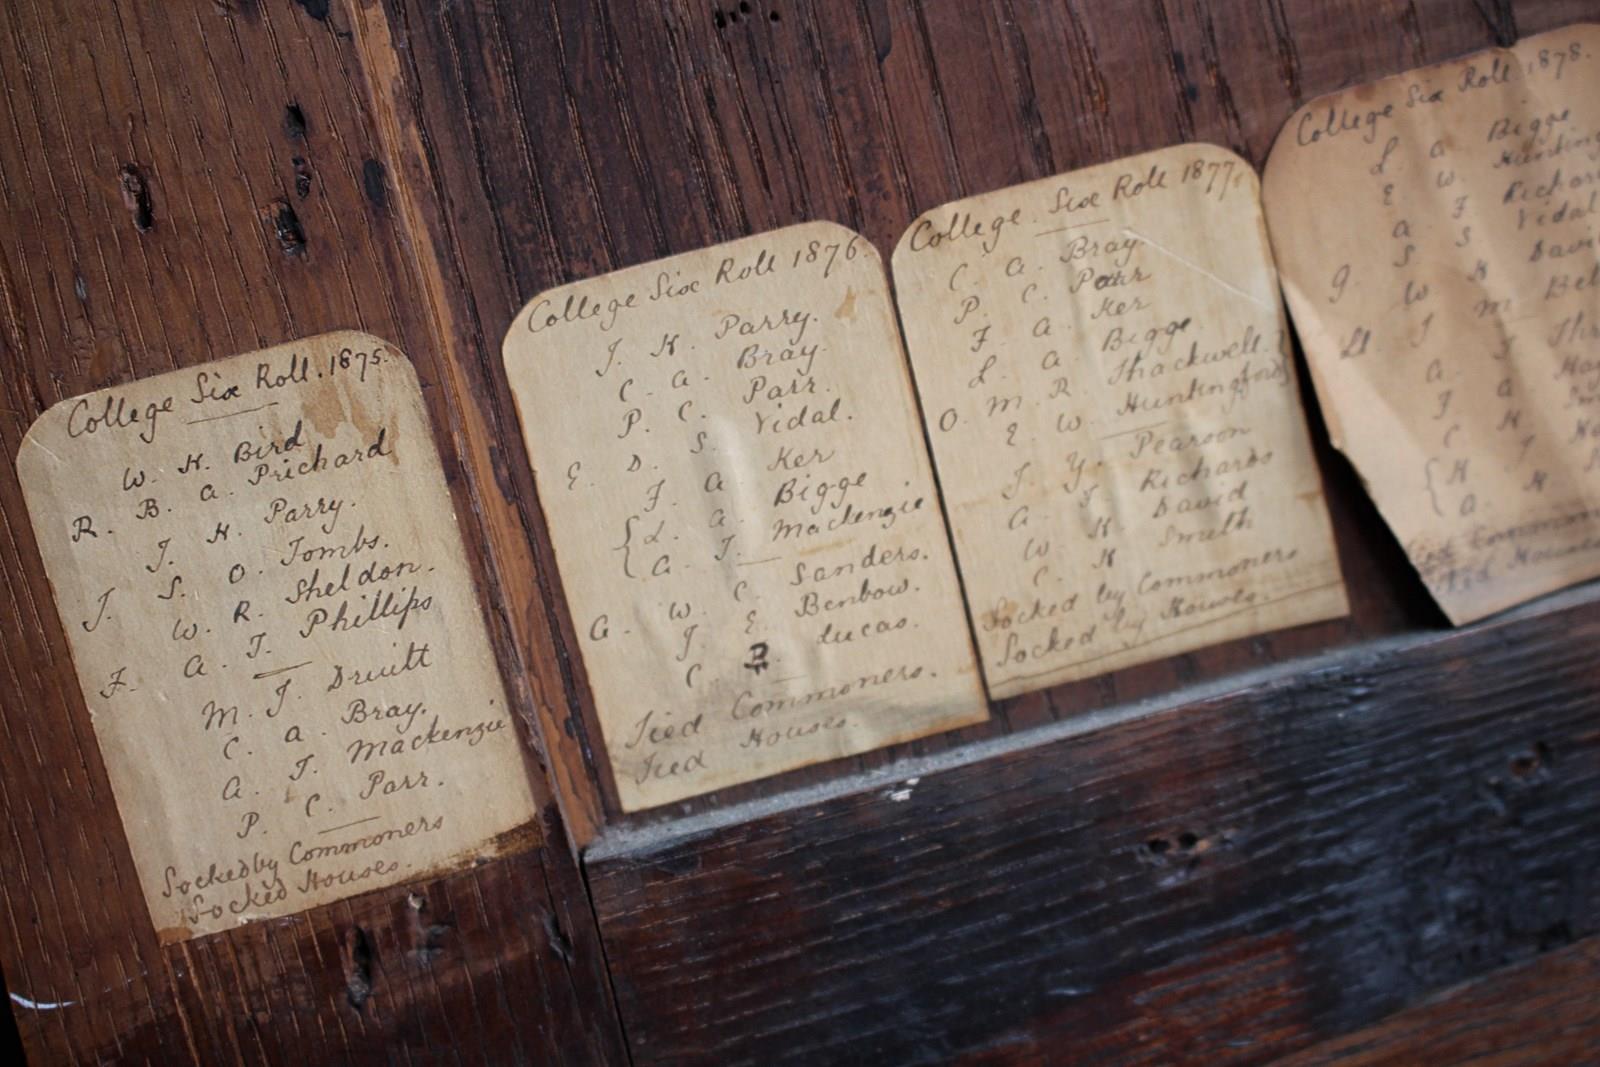 College Six Roll. 1875.
W. H. Bird
R. B. A. Prichard
J. H. Parry.
J. S. O. Tombs.
W. R. Sheldon.
F. A. J. Phillips
M. J. Druitt
C. A. Bray.
A. J. Mackenzie
P. C. Parr.
Socked by Commoners
Socked Houses.
College Six Roll 1876.
J. H. Parry.
C. A. Bray.
P. C. Parr.
E. D. S. Vidal.
F. A. Ker
L. A. Bigge
A. J. Mackenzie
G. W. C. Sanders.
J. E. Benbow.
C. Lucas.
Tied Commoners.
Tied Houses.
College Six Roll 1877.
C. A. Bray.
P. C. Parr
F. A. Ker
L. A. Bigge
O. M. R. Thackwell.
E. W. Huntingford
J. Y. Pearson
A. J. Richards
W. H. David
C. H. Smith
Socked by Commoners
Socked by Houses.
College Six Roll 1878.
L. A. Bigge
E. W.
A. F.
S. S. Vidal
G. W. H.
Ll. J. M.
A. J.
F. A.
C. H.
H. J.
A. H.